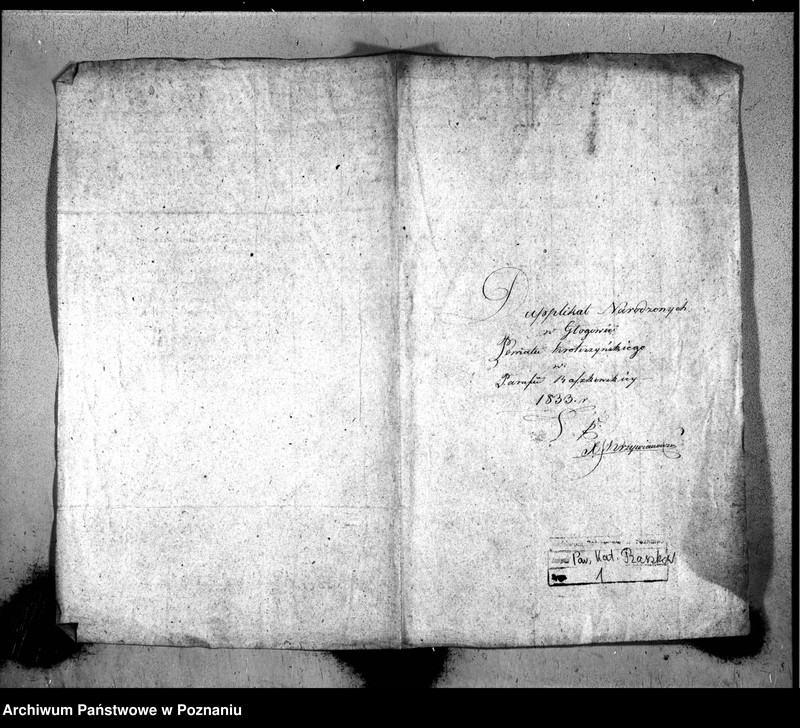 Dupplikat Narodzonych
w Głogowie
Powiatu Krotoszyńskiego
w
Parafii Raszkowskiy
1833. r
Par. Kat. Raszków
1
Archiwum Państwowe w Poznaniu